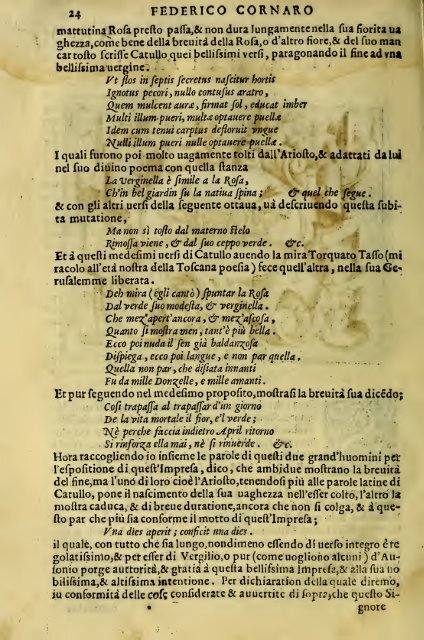 24 FEDERICO CORNARO
mattutina Rosa presto passa,& non dura lungamente nella sua fiorita ua
ghezza,come bene della breuità della Rosa,o d'altro fiore,& del suo man
car tosto scrisse Catullo quei bellissimi versi, paragonando il fine ad vna
bellissima uergine.
Vt flos in septis secretus nascitur hortis
Ignotus pecori, nullo contusus aratro,
Quem mulcent auræ, firmat sol, educat imber
Multi illum pueri, multæ optauere puellæ
Idem cum tenui carptus defloruit vngue
Nulli illum pueri nulle optauere puellæ.
I quali furono poi molto uagamente tolti dall'Ariosto,& adattati da lui
nel suo diuino poema con quella stanza
La verginella è simile a la Rosa,
Ch'in bel giardin su la natiua spina; & quel che segue.
& con gli altri uersi della seguente ottaua, uà descriuendo questa subi-
ta mutatione,
Ma non sì tosto dal materno stelo
Rimossa viene, & dal suo ceppo verde. &c.
Et à questi medesimi uersi di Catullo auendo la mira Torquato Tasso (mi
racolo all'età nostra della Toscana poesia) fece quell'altra, nella sua Ge-
rusalemme liberata.
Deh mira (egli cantò) spuntar la Rosa
Dal verde suo modesta, & verginella.
Che mez'apert'ancora, & mez'ascosa,
Quanto si mostra men, tant'è più bella.
Ecco poi nuda il sen già baldanzosa
Dispiega, ecco poi langue, e non par quella.
Quella non par, che disiata innanti
Fu da mille Donzelle, e mille amanti.
Et pur seguendo nel medesimo proposito,mostrasi la breuità sua dicẽdo;
Così trapassa al trapassar d'un giorno
De la vita mortale il fior, e'l verde;
Nè perche faccia indietro April ritorno
Si rinforza ella mai, nè si rinuerde. &c.
Hora raccogliendo io insieme le parole di questi due grand'huomini per
l'espositione di quest'Impresa, dico, che ambidue mostrano la breuità
del fine,ma l'uno di loro cioè l'Ariosto,tenendosi più alle parole latine di
Catullo, pone il nascimento della sua uaghezza nell'esser colto,l'altro la
mostra caduca, & di breue duratione,ancora che non si colga, & à que-
sto par che più sia conforme il motto di quest'Impresa;
Vna dies aperit; conficit vna dies.
il quale, con tutto che sia lungo,nondimeno essendo di uerso integro è re
golatissimo,& per esser di Vergilio, o pur (come uogliono alcuni) d'Au-
sonio porge auttorità,& gratia à questa bellissima Impresa,& alla sua no
bilissima,& altissima intentione. Per dichiaration della quale diremo,
in conformità delle cose considerate & auuertite di sopra,che questo Si-
gnore